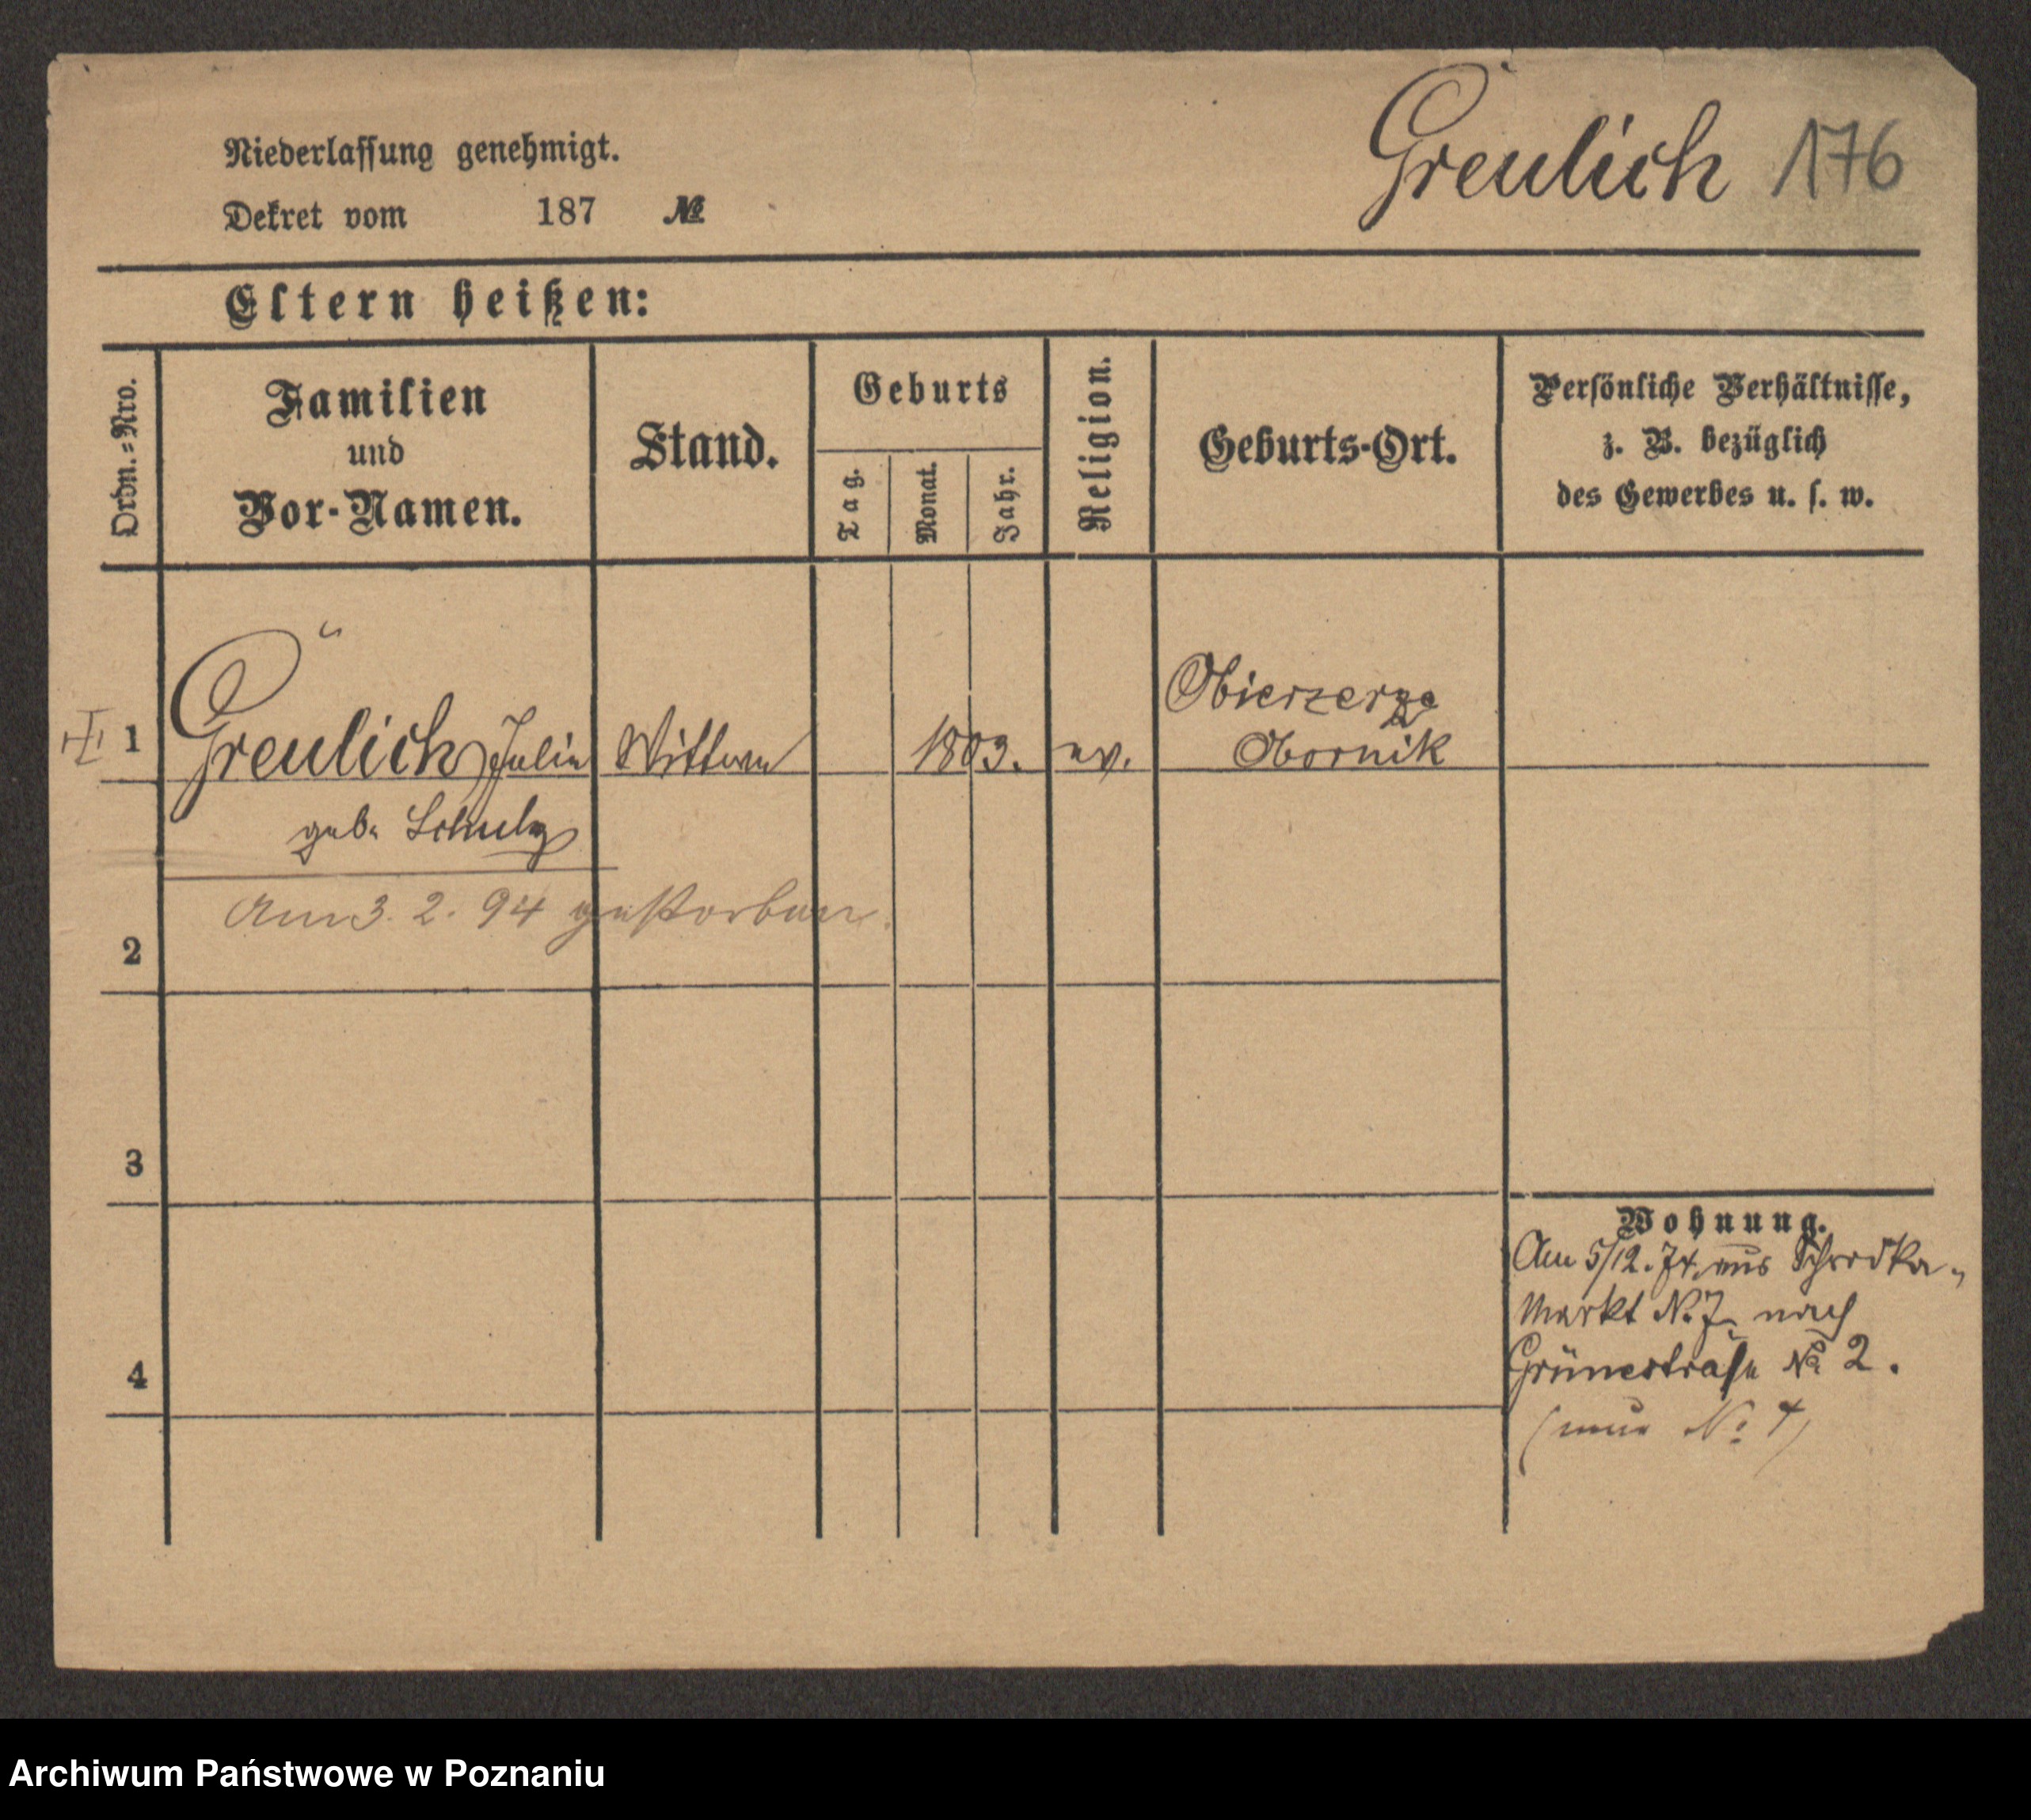 Greulich 176
Niederlassung genehmigt.
Dekret vom 187 №
Eltern heißen:
Ordn.-Nro.
Familien
und
Vor-Namen.
Stand.
Geburts
Tag.
Monat.
Jahr.
Religion.
Geburts-Ort.
Persönliche Verhältnisse,
z. B. bezüglich
des Gewerbes u. s. w.
1 Greulich Julie Wittwe 1803. ev. Obierzerze
Obornik
geb. Schulz
Am 3. 2. 94 gestorben.
2
3
4
Wohnung.
Am 5/12. 74. aus Schrodka-
Markt N. 7. nach
Grünestraße No 2.
(neue No 4)
Archiwum Państwowe w Poznaniu